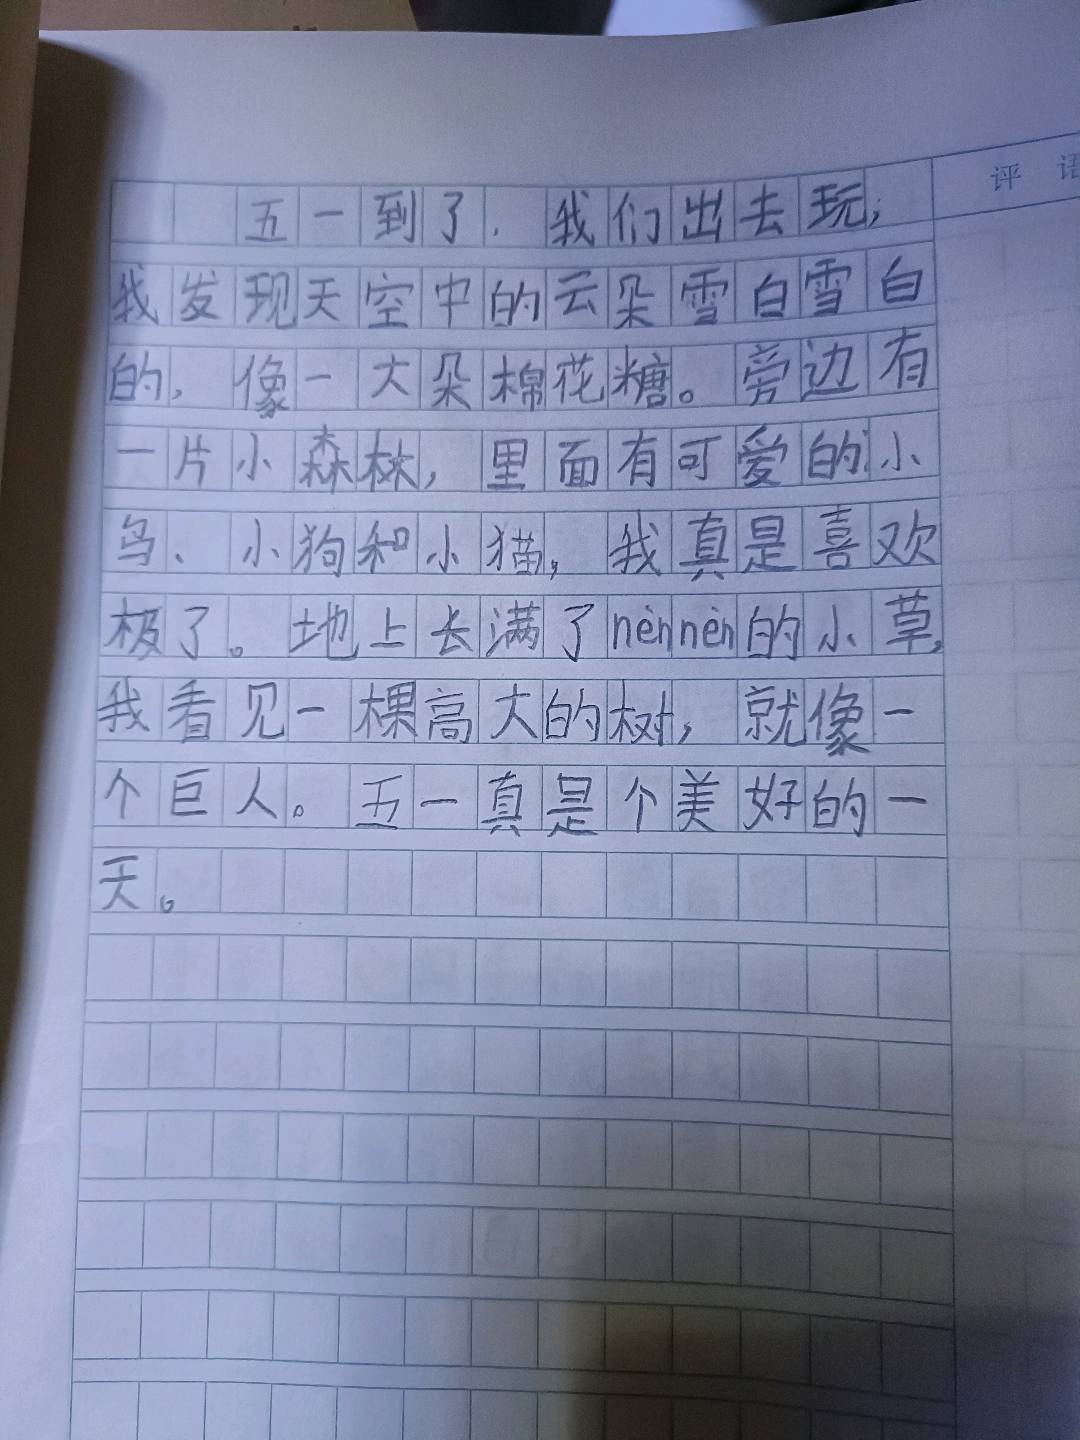 评 语
五一到了，我们出去玩，
我发现天空中的云朵雪白雪白
的，像一大朵棉花糖。旁边有
一片小森林，里面有可爱的小
鸟、小狗和小猫，我真是喜欢
极了。地上长满了nènnèn的小草，
我看见一棵高大的树，就像一
个巨人。五一真是个美好的一
天。